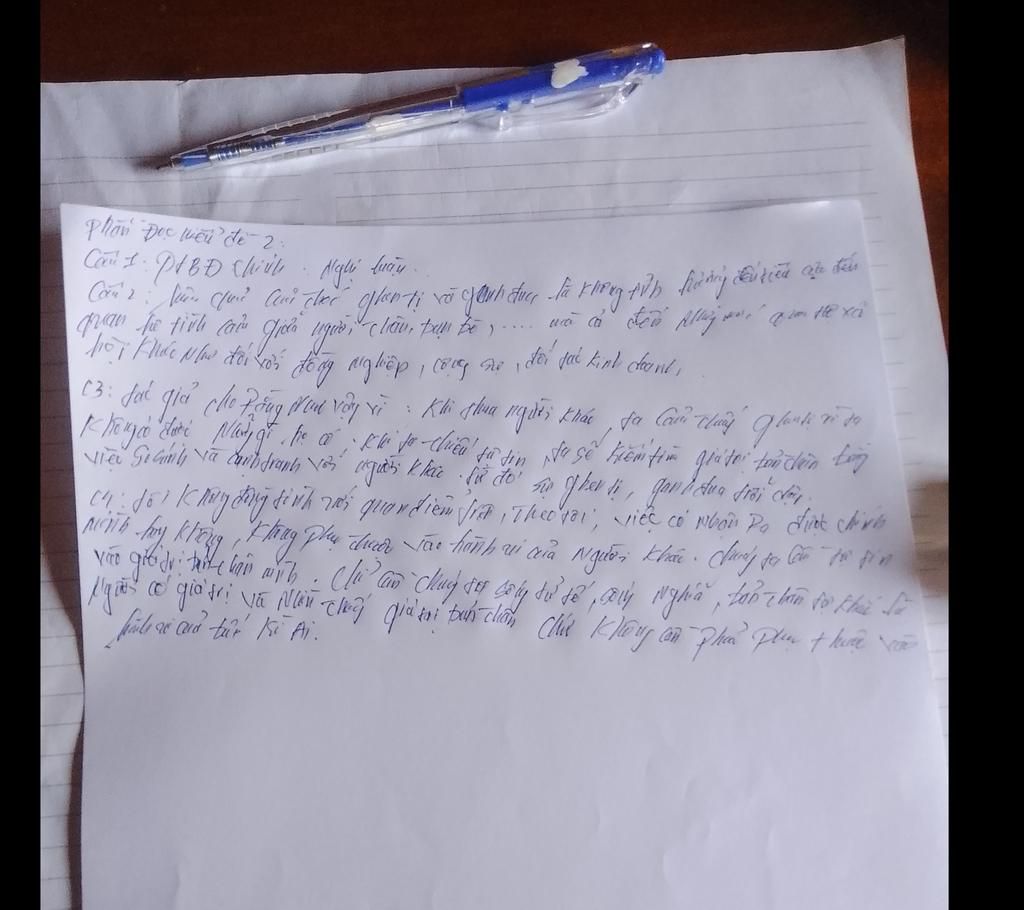 Phần Đọc hiểu đề 2:
Câu 1: PTBĐ chính: Nghị luận.
Câu 2: hậu quả của thói ghen tị và ganh đua là không ảnh hưởng đến tiêu cực đến
quan hệ tình cảm giữa người thân, bạn bè, .... mà cả đến những mối quan hệ xã
hội khác như đối với đồng nghiệp, cộng sự, đối tác kinh doanh,
C3: tác giả cho rằng như vậy vì: Khi thua người khác, ta cảm thấy ghen tị vì ta
không có được những gì họ có. Khi ta thiếu tự tin, ta sẽ kiếm tìm giá trị bản thân bằng
việc so sánh và cạnh tranh với người khác. từ đó sự ghen tị, ganh đua trỗi dậy.
C4: tôi không đồng tình với quan điểm trên, Theo tôi việc có nhận ra được chính
mình hay không, không phụ thuộc vào hành vi của người khác. chúng ta cần tự tin
vào giá trị bản thân mình. Chỉ cần chúng ta sống tử tế, có ý nghĩa, bản thân
người có giá trị và nhìn thấy giá trị bản thân chứ không cần phải phụ thuộc vào
hành vi của bất kì ai.